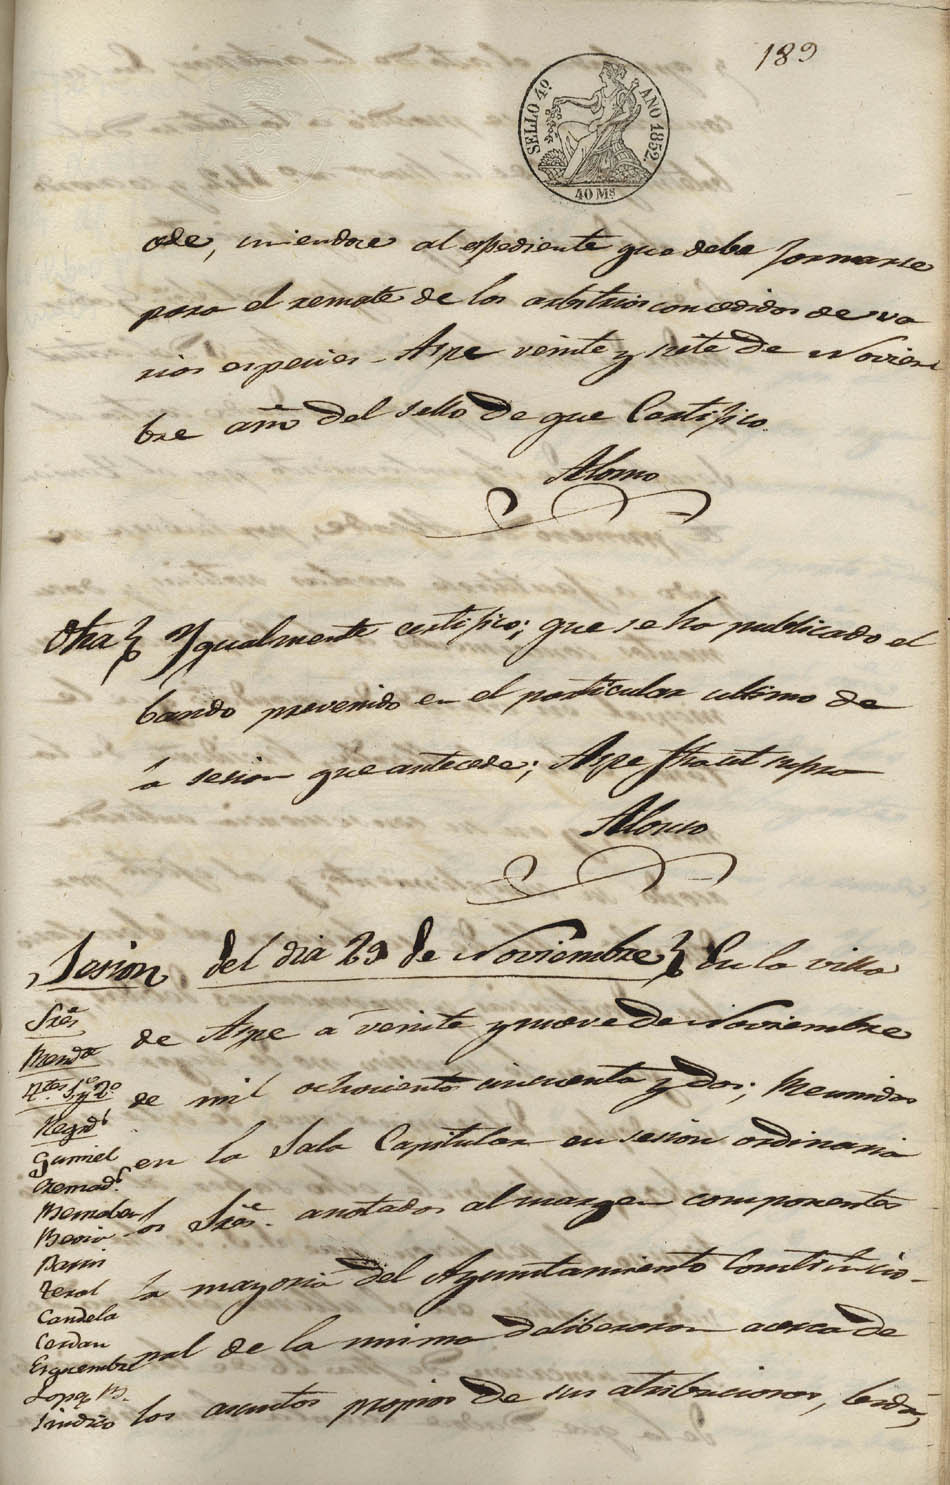 189
SELLO 4º AÑO 1852
40 Ms
ede, uniendose al espediente que debe formarse
para el remate de los arbitrios concedidos de va
rias especies. Aspe veinte y siete de Noviem
bre año del sello de que Certifico.
Alonso
Otra} Ygualmente certifico; que se ha publicado el
bando prevenido en el particular ultimo de
a sesion que antecede; Aspe fha ut supra
Alonso
Sesion del dia 29 de Noviembre} En la villa
de Aspe a veinte y nueve de Noviembre
de mil ochociento cincuenta y dos; Reunidos
en la Sala Capitular en sesion ordinaria
os Sres. anotados al margen componentes
la mayoria del Ayuntamiento Constitucio-
nal de la misma deliberaron acerca de
los asuntos propios de sus atribuciones, leida,
Sres
Ttes 1º y 2º
Regids
Gumiel
Cremads
Bernabeu
Pavin
Teral
Candela
Cerdan
Esquembre
Lopez B.
Sindico